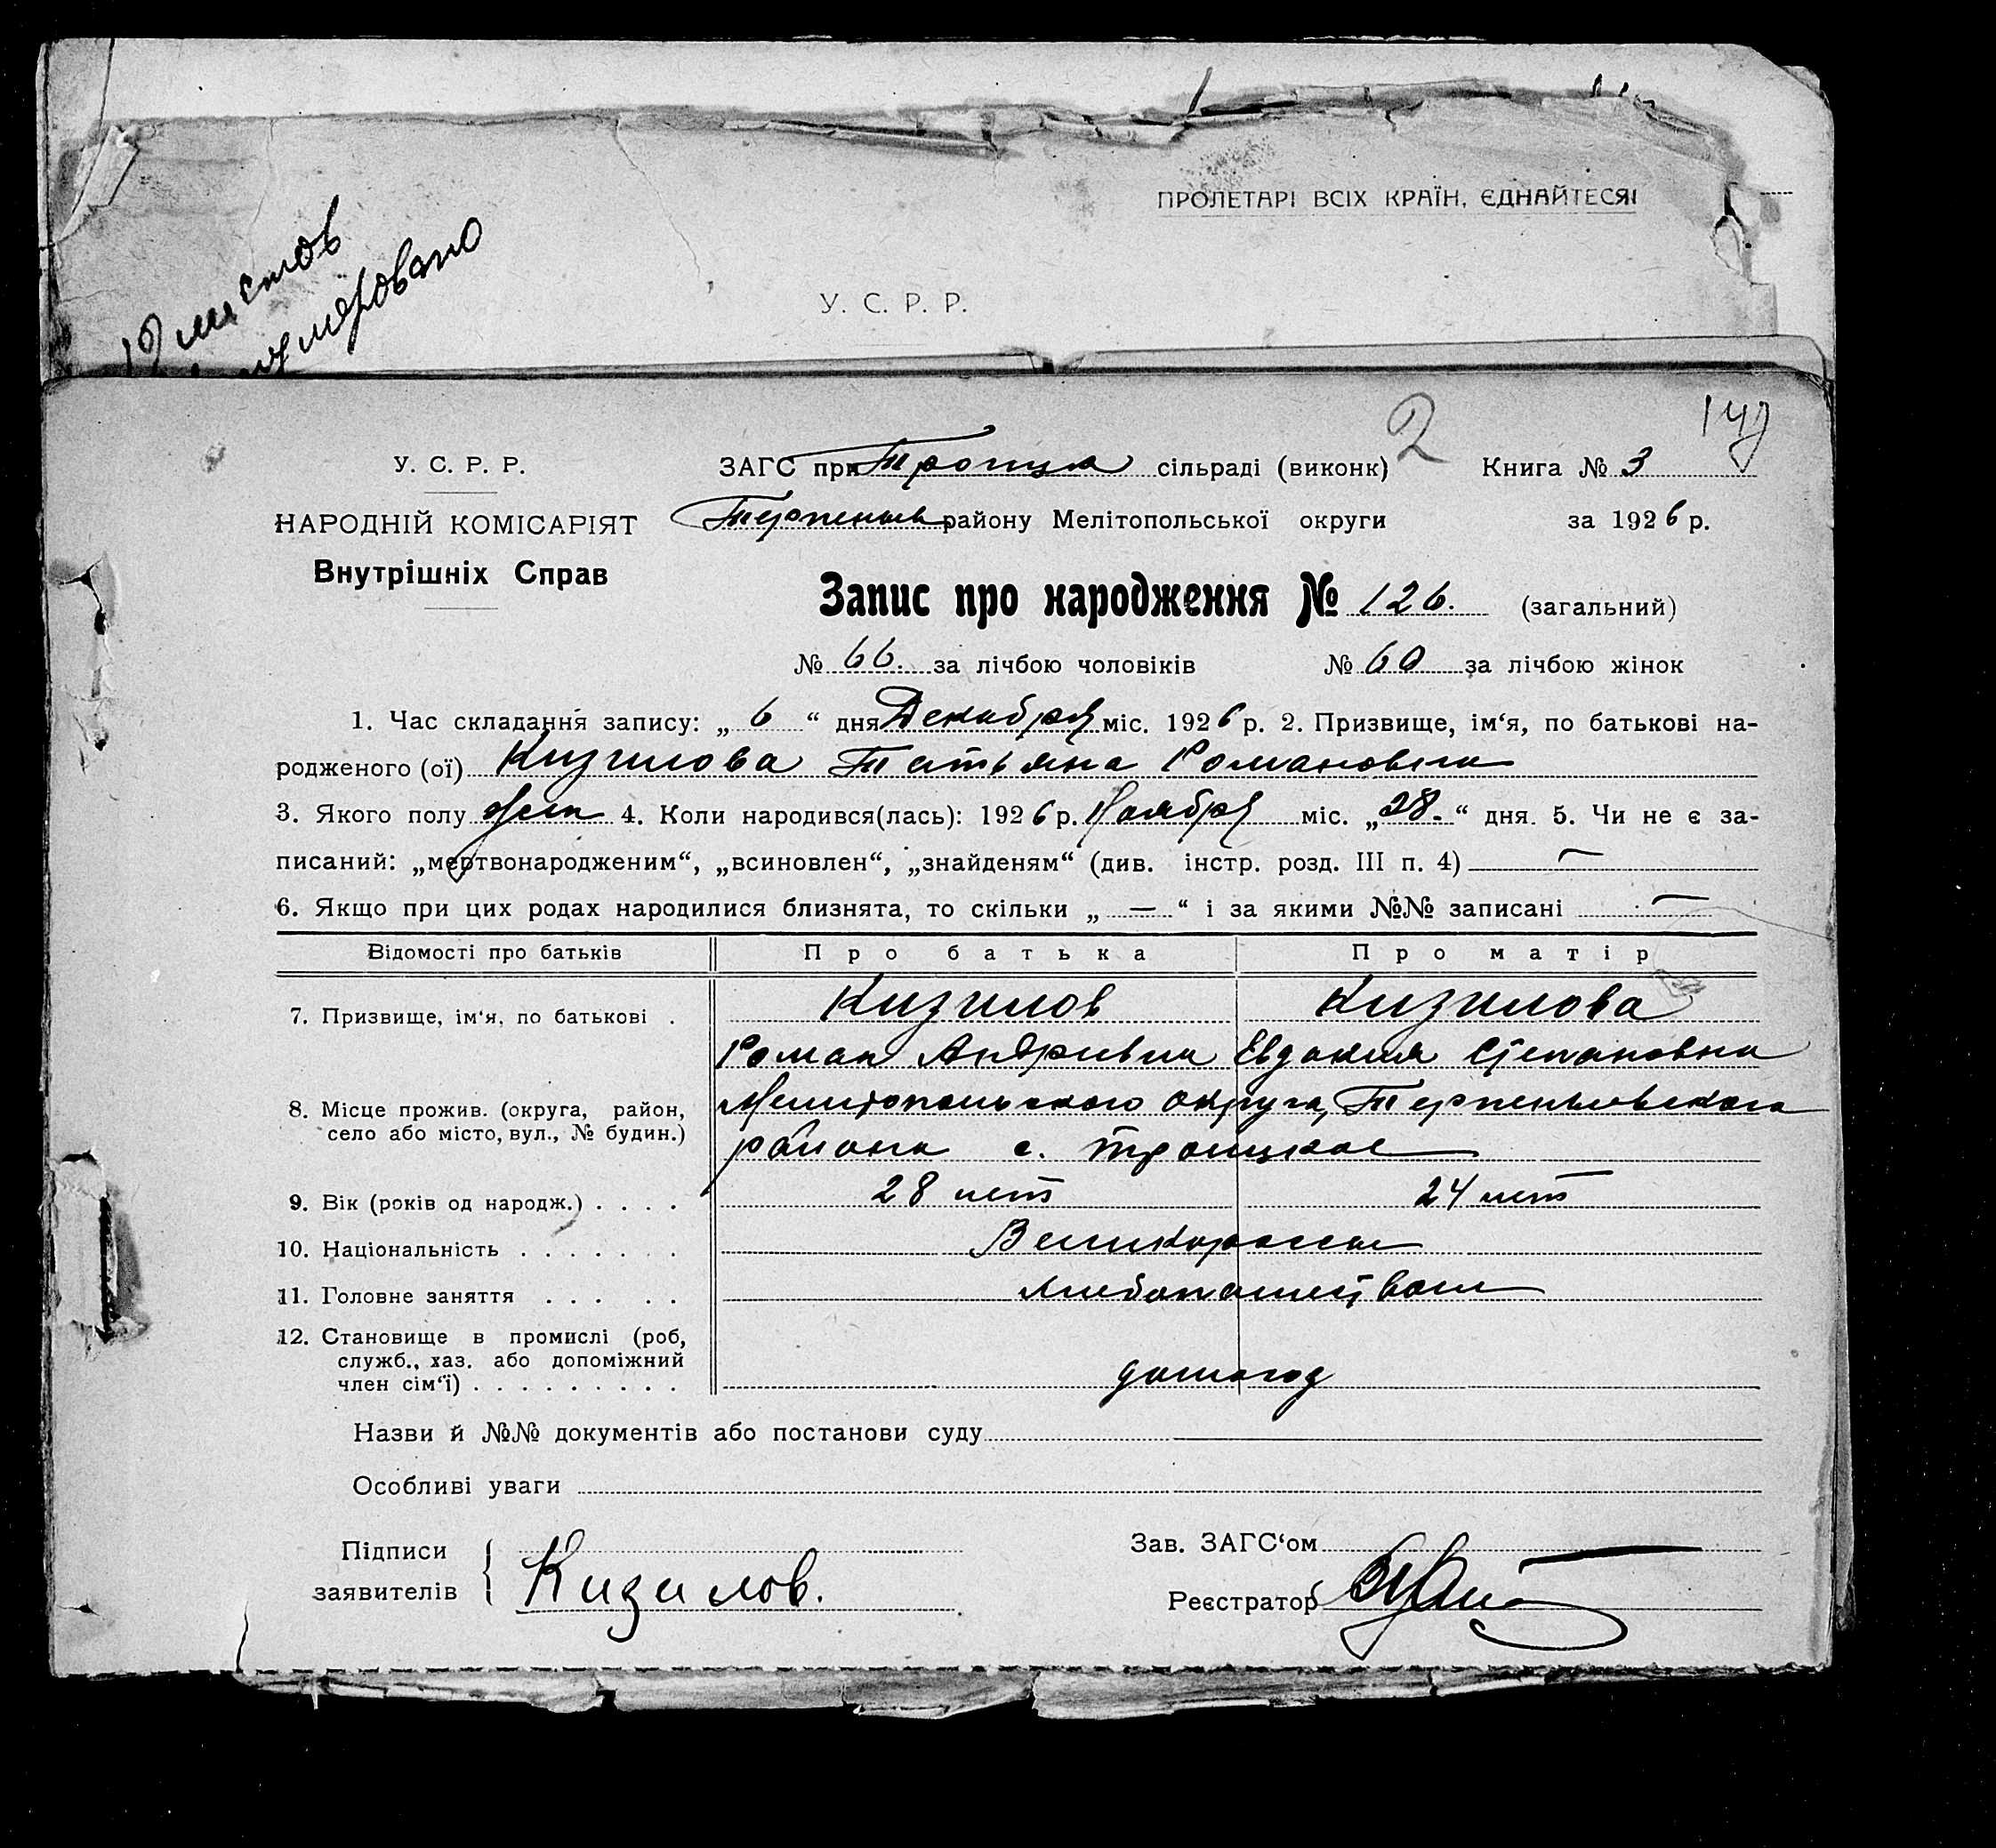 листов
ПРОЛЕТАРІ ВСІХ КРАЇН, ЄДНАЙТЕСЯ!
У. С. Р. Р.
2
У. С. Р. Р.
ЗАГС при Троицк сільраді (виконк) Книга № 3
НАРОДНІЙ КОМІСАРІЯТ
Терпеньев району Мелітопольської округи за 1926 р.
Внутрішніх Справ
Запис про народження № 126. (загальний)
№ 66. за лічбою чоловіків № 60 за лічбою жінок
1. Час складання запису: „ 6 “ дня Декабря міс. 1926 р. 2. Призвище, ім‘я, по батькові на-
родженого (ої) Кизилова Татьяна Романовна
3. Якого полу жен 4. Коли народився(лась): 1926 р. Ноября міс. „28.“ дня. 5. Чи не є за-
писаний: „мертвонародженим“, „всиновлен“, „знайденям“ (див. інстр. розд. III п. 4) —
6. Якщо при цих родах народилися близнята, то скільки „ — “ і за якими №№ записані —
Відомості про батьків Про батька Про матір
7. Призвище, ім‘я, по батькові . Кизилов Кизилова
Роман Андриевич Евдокия Степановна
8. Місце прожив. (округа, район, село або місто, вул., № будин.) Мелитопольского округа, Терпеньевского
района с. Троицкое
9. Вік (років од народж.) . . . . 28 лет 24 лет
10. Національність . . . . . . . Великороссы
11. Головне заняття . . . . . Хлебопашеством
12. Становище в промислі (роб,
служб., хаз. або допоміжний
член сім‘ї) . . . . . . . . .
Назви й №№ документів або постанови суду
Особливі уваги
Підписи
заявителів { Кизилов.
Зав. ЗАГС‘ом
Реєстратор